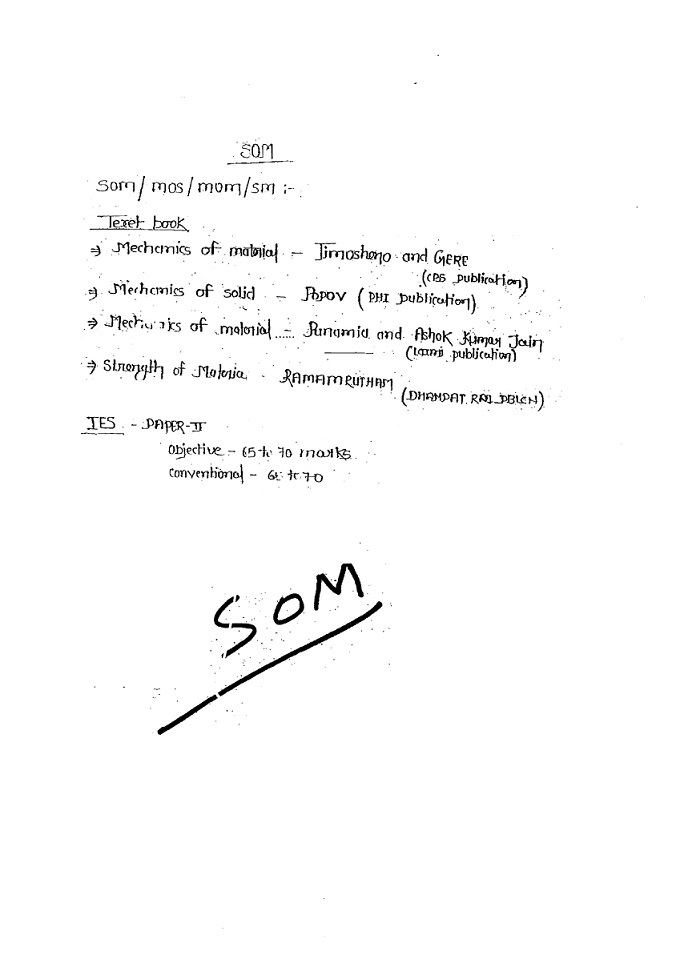 SOM
Som / mos / mom / sm :-
Text book
⇒ Mechanics of material - Timosheno and GERE
(CBS publication)
⇒ Mechanics of solid - Popov (PHI publication)
⇒ Mechanics of material - Punamia and Ashok Kumar Jain
(Laxmi publication)
⇒ Strength of Materia - RAMAMRUTHAM
(DHANPAT RAI PBLCN)
IES - PAPER-II
Objective - 65 to 70 marks
Conventional - 65 to 70
SOM